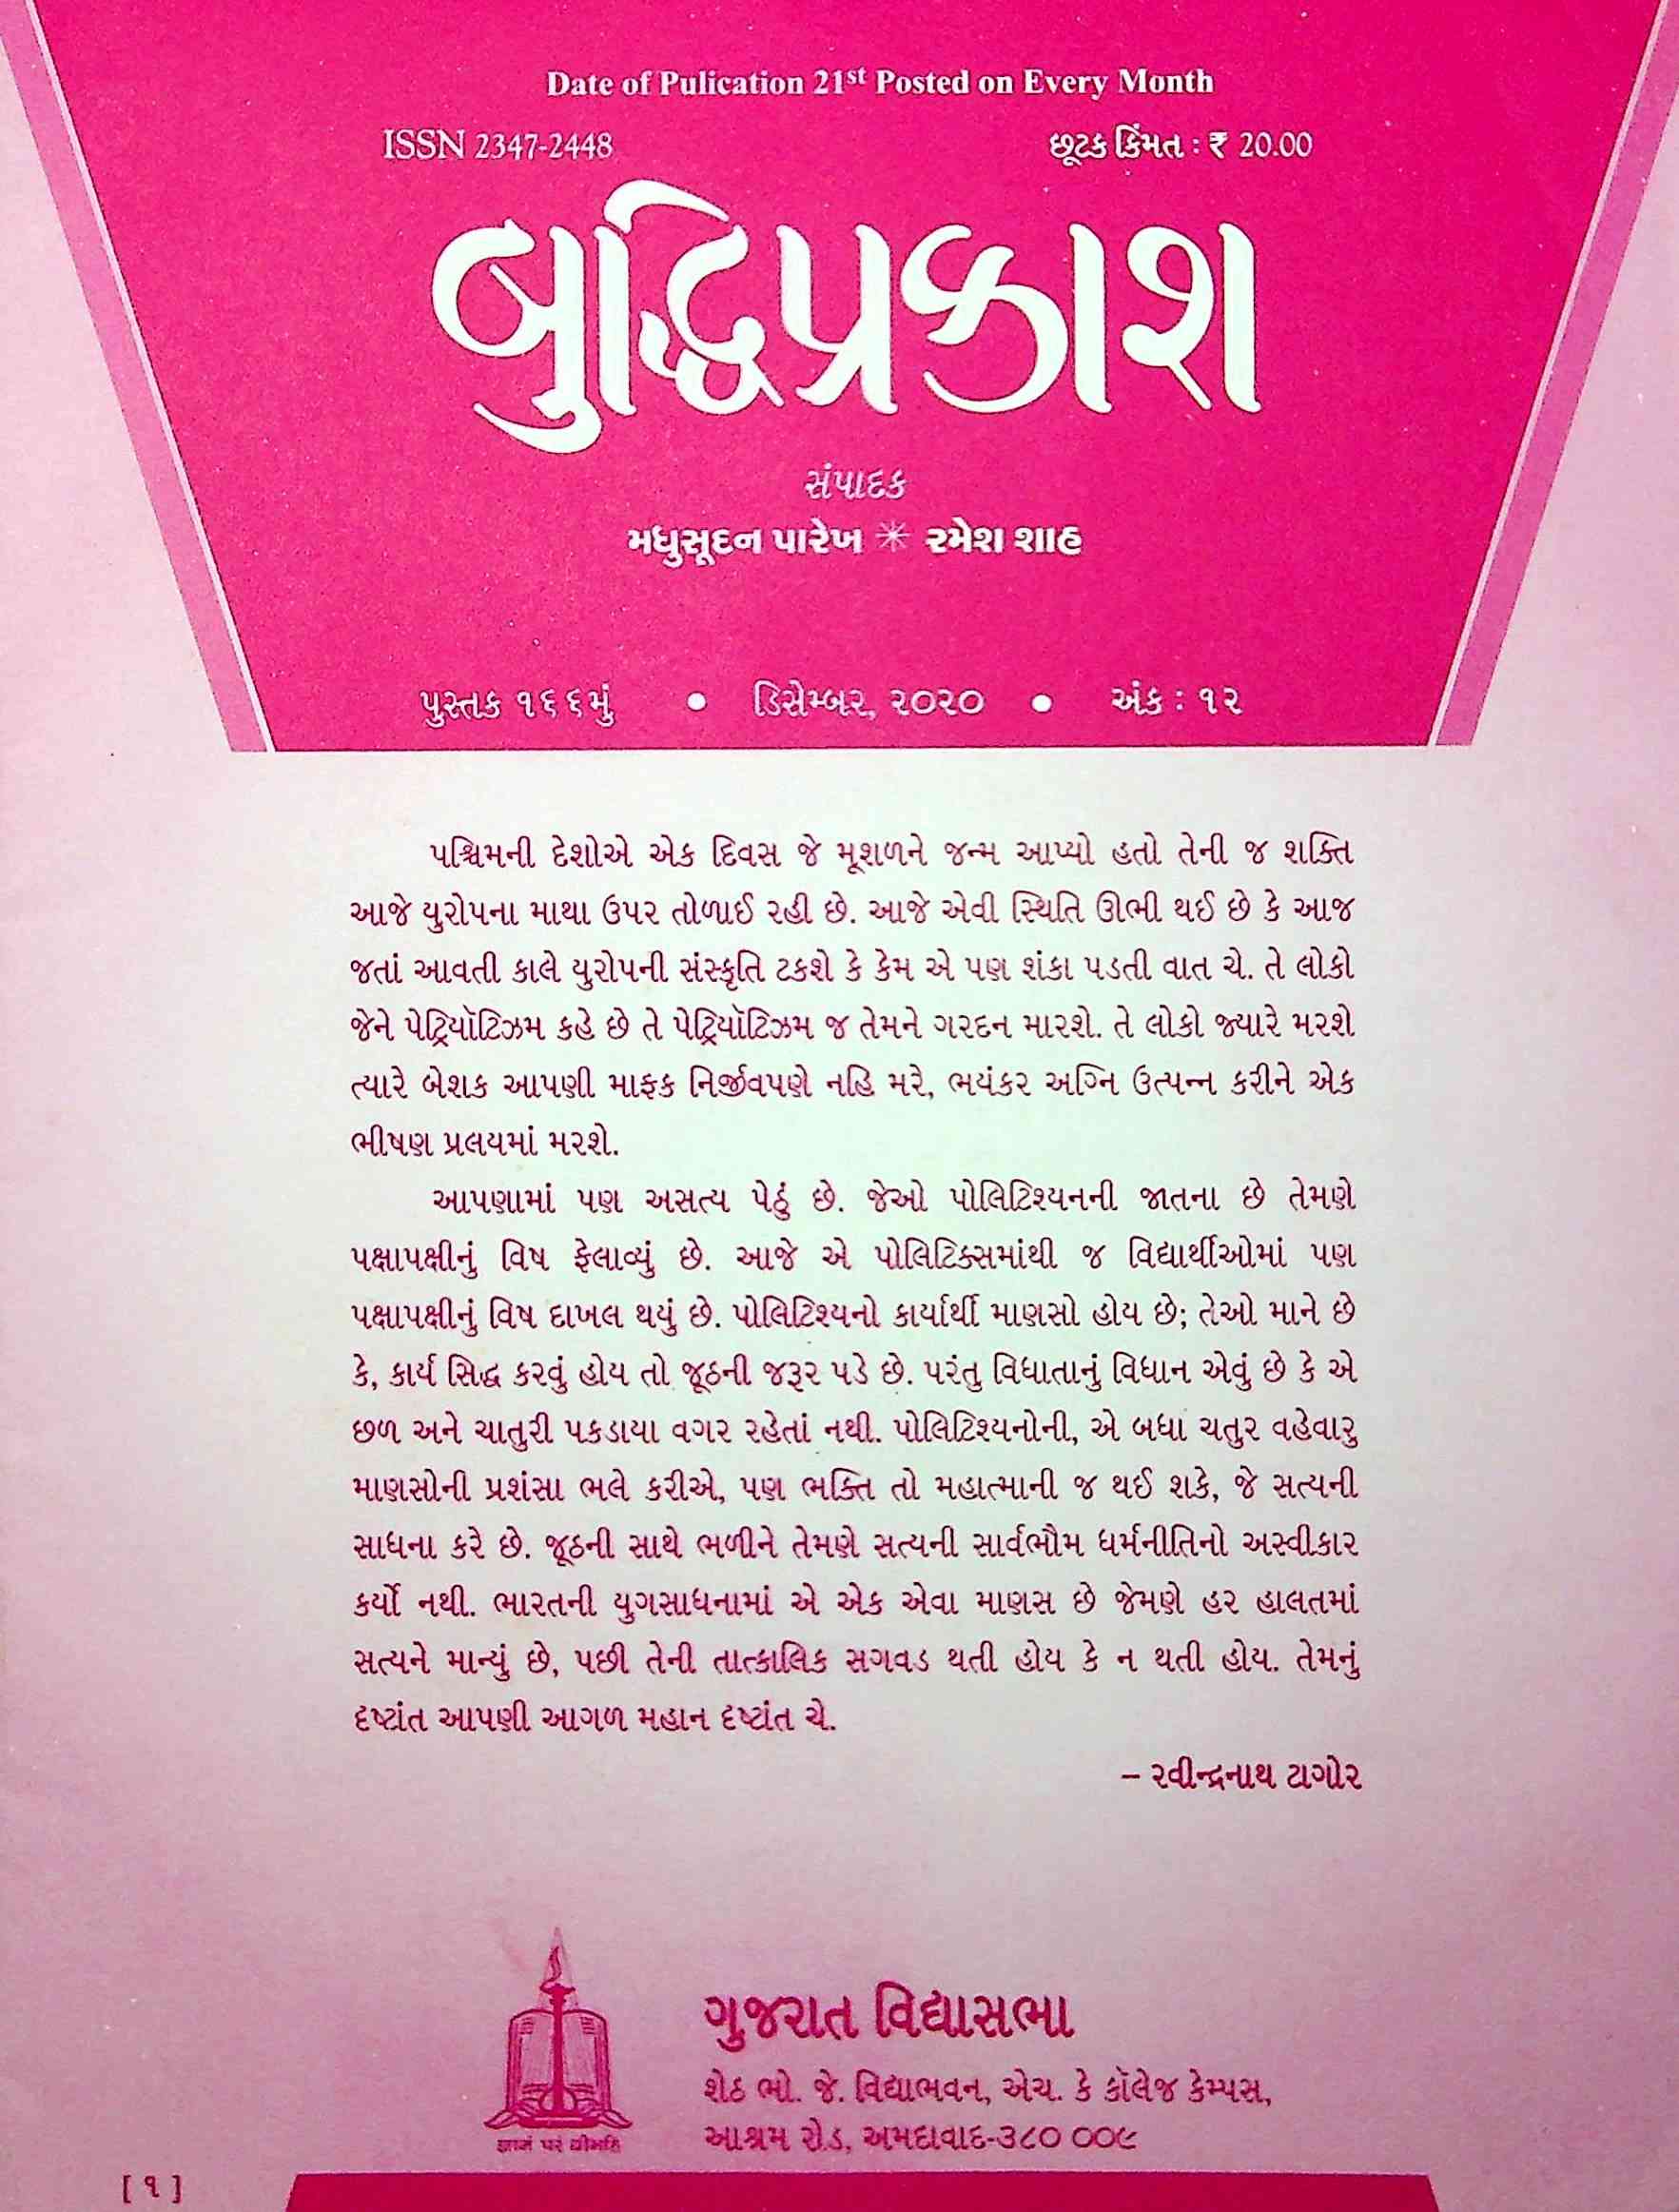 Date of Pulication 21st Posted on Every Month
ISSN 2347-2448
છૂટક કિંમત : ₹ 20.00
બુદ્ધિપ્રકાશ
સંપાદક
મધુસૂદન પારેખ ✳ રમેશ શાહ
પુસ્તક ૧૬૬મું • ડિસેમ્બર, ૨૦૨૦ • અંક : ૧૨
પશ્ચિમની દેશોએ એક દિવસ જે મૂશળને જન્મ આપ્યો હતો તેની જ શક્તિ
આજે યુરોપના માથા ઉપર તોળાઈ રહી છે. આજે એવી સ્થિતિ ઊભી થઈ છે કે આજ
જતાં આવતી કાલે યુરોપની સંસ્કૃતિ ટકશે કે કેમ એ પણ શંકા પડતી વાત ચે. તે લોકો
જેને પેટ્રિયૉટિઝમ કહે છે તે પેટ્રિયૉટિઝમ જ તેમને ગરદન મારશે. તે લોકો જ્યારે મરશે
ત્યારે બેશક આપણી માફક નિર્જીવપણે નહિ મરે, ભયંકર અગ્નિ ઉત્પન્ન કરીને એક
ભીષણ પ્રલયમાં મરશે.
આપણામાં પણ અસત્ય પેઠું છે. જેઓ પોલિટિશ્યનની જાતના છે તેમણે
પક્ષાપક્ષીનું વિષ ફેલાવ્યું છે. આજે એ પોલિટિક્સમાંથી જ વિદ્યાર્થીઓમાં પણ
પક્ષાપક્ષીનું વિષ દાખલ થયું છે. પોલિટિશ્યનો કાર્યાર્થી માણસો હોય છે; તેઓ માને છે
કે, કાર્ય સિદ્ધ કરવું હોય તો જૂઠની જરૂર પડે છે. પરંતુ વિધાતાનું વિધાન એવું છે કે એ
છળ અને ચાતુરી પકડાયા વગર રહેતાં નથી. પોલિટિશ્યનોની, એ બધા ચતુર વહેવારુ
માણસોની પ્રશંસા ભલે કરીએ, પણ ભક્તિ તો મહાત્માની જ થઈ શકે, જે સત્યની
સાધના કરે છે. જૂઠની સાથે ભળીને તેમણે સત્યની સાર્વભૌમ ધર્મનીતિનો અસ્વીકાર
કર્યો નથી. ભારતની યુગસાધનામાં એ એક એવા માણસ છે જેમણે હર હાલતમાં
સત્યને માન્યું છે, પછી તેની તાત્કાલિક સગવડ થતી હોય કે ન થતી હોય. તેમનું
દૃષ્ટાંત આપણી આગળ મહાન દૃષ્ટાંત ચે.
– રવીન્દ્રનાથ ટાગોર
ગુજરાત વિદ્યાસભા
શેઠ ભો. જે. વિદ્યાભવન, એચ. કે કૉલેજ કેમ્પસ,
આશ્રમ રોડ, અમદાવાદ-૩૮૦ ૦૦૯
જ્ઞાનં પરં ધીમહિ
[ ૧ ]